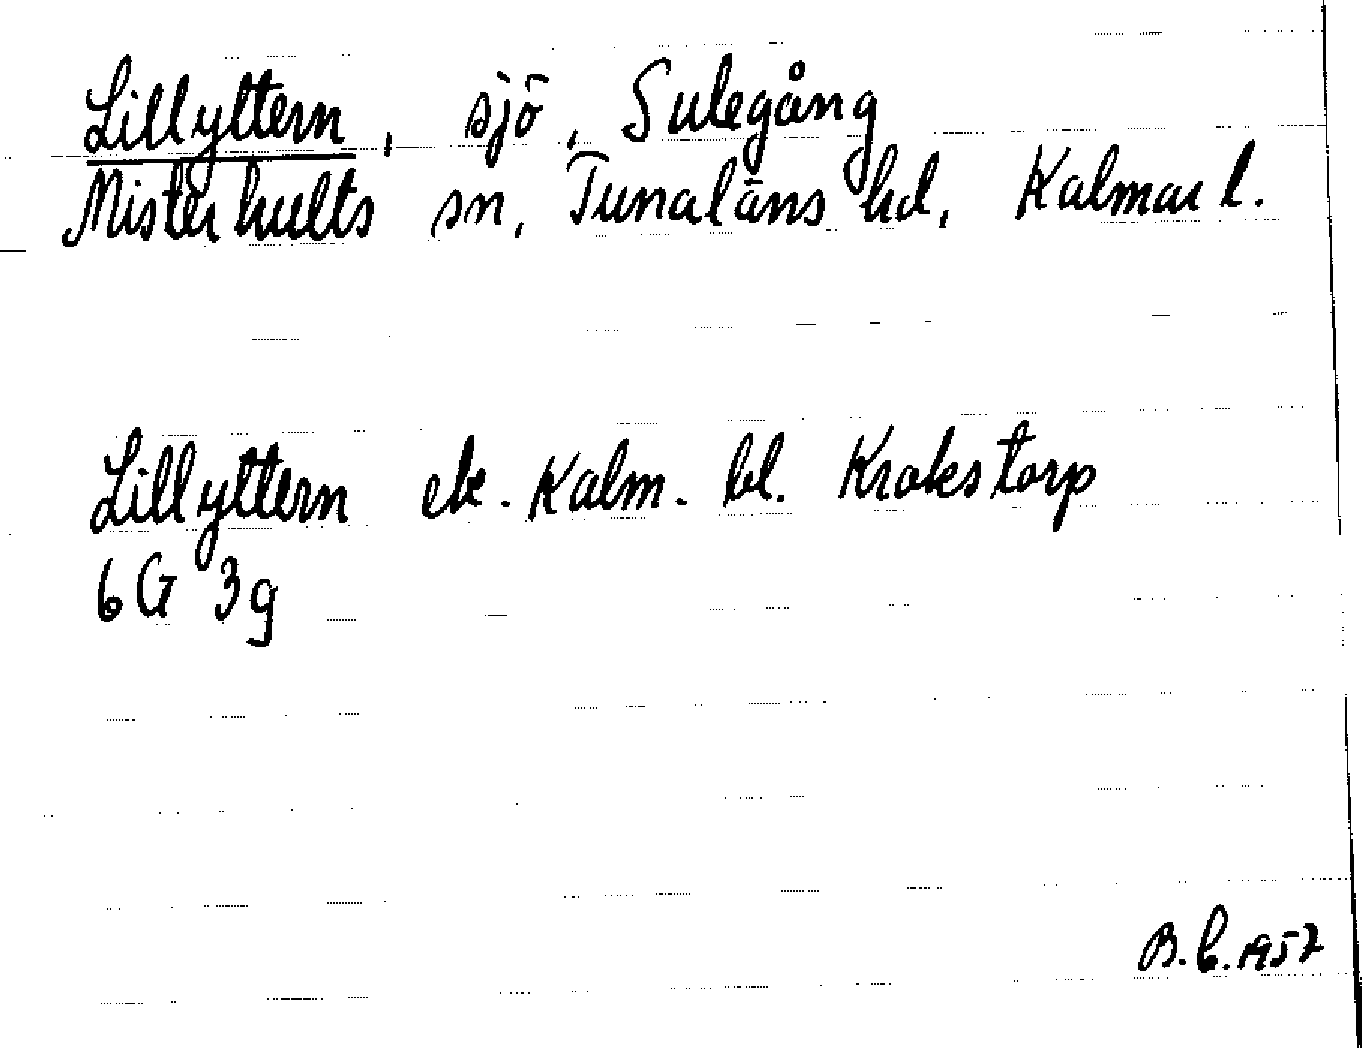 Lillyltern, sjö, Sulegång
Misterhults sn, Tunaläns hd, Kalmar l.
Lillyltern ek. Kalm. bl. Krokstorp
6G 3g
B.L. 1957